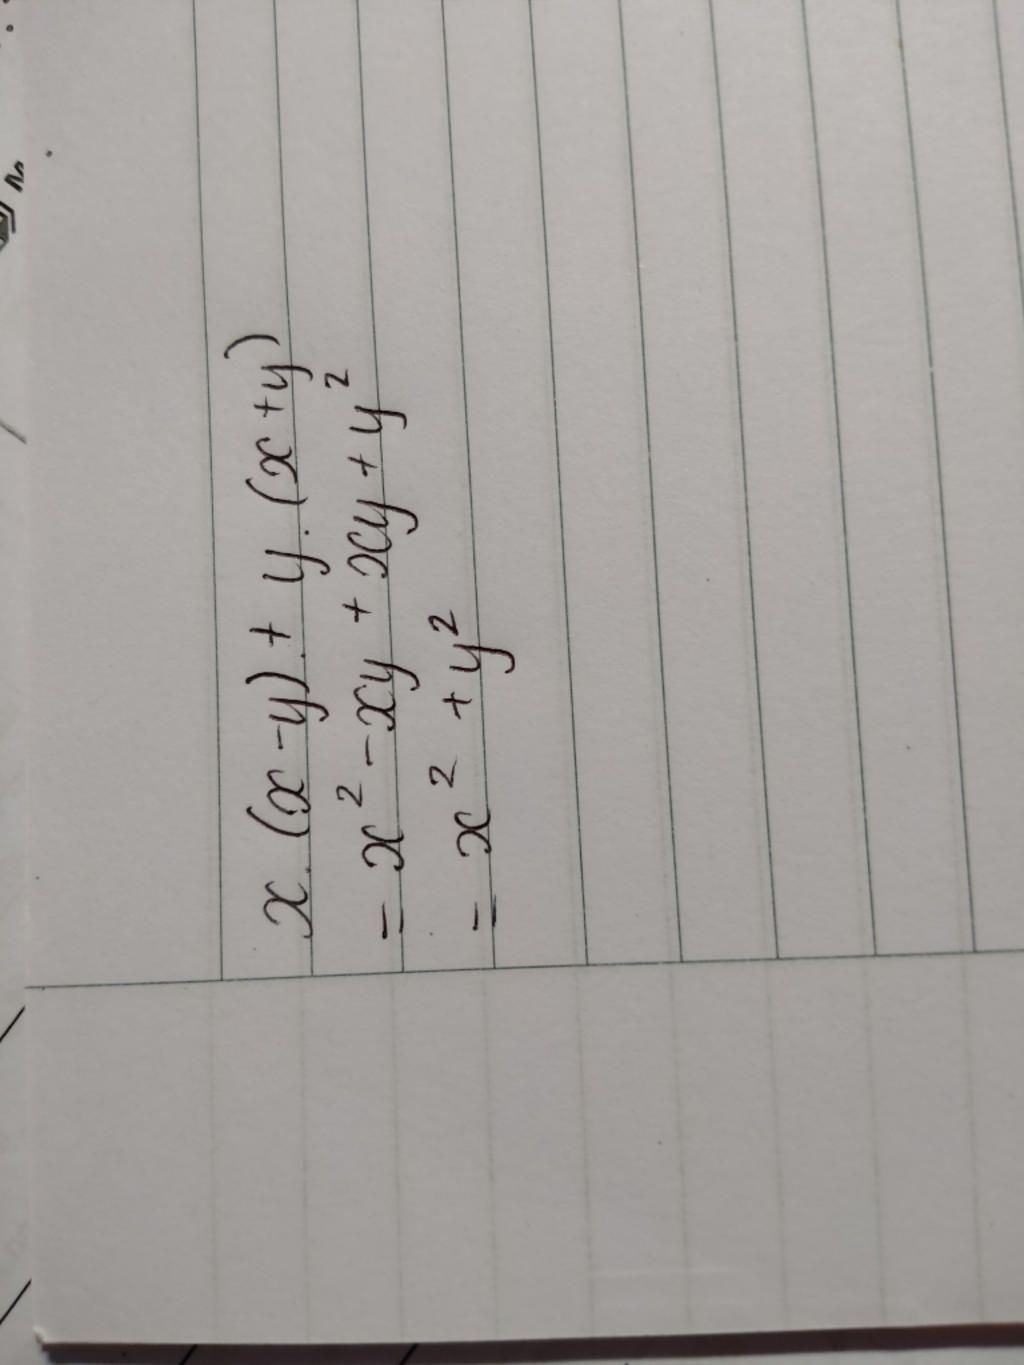 x.(x-y)+ y.(x+y)
= x² - xy + xy + y²
= x² + y²